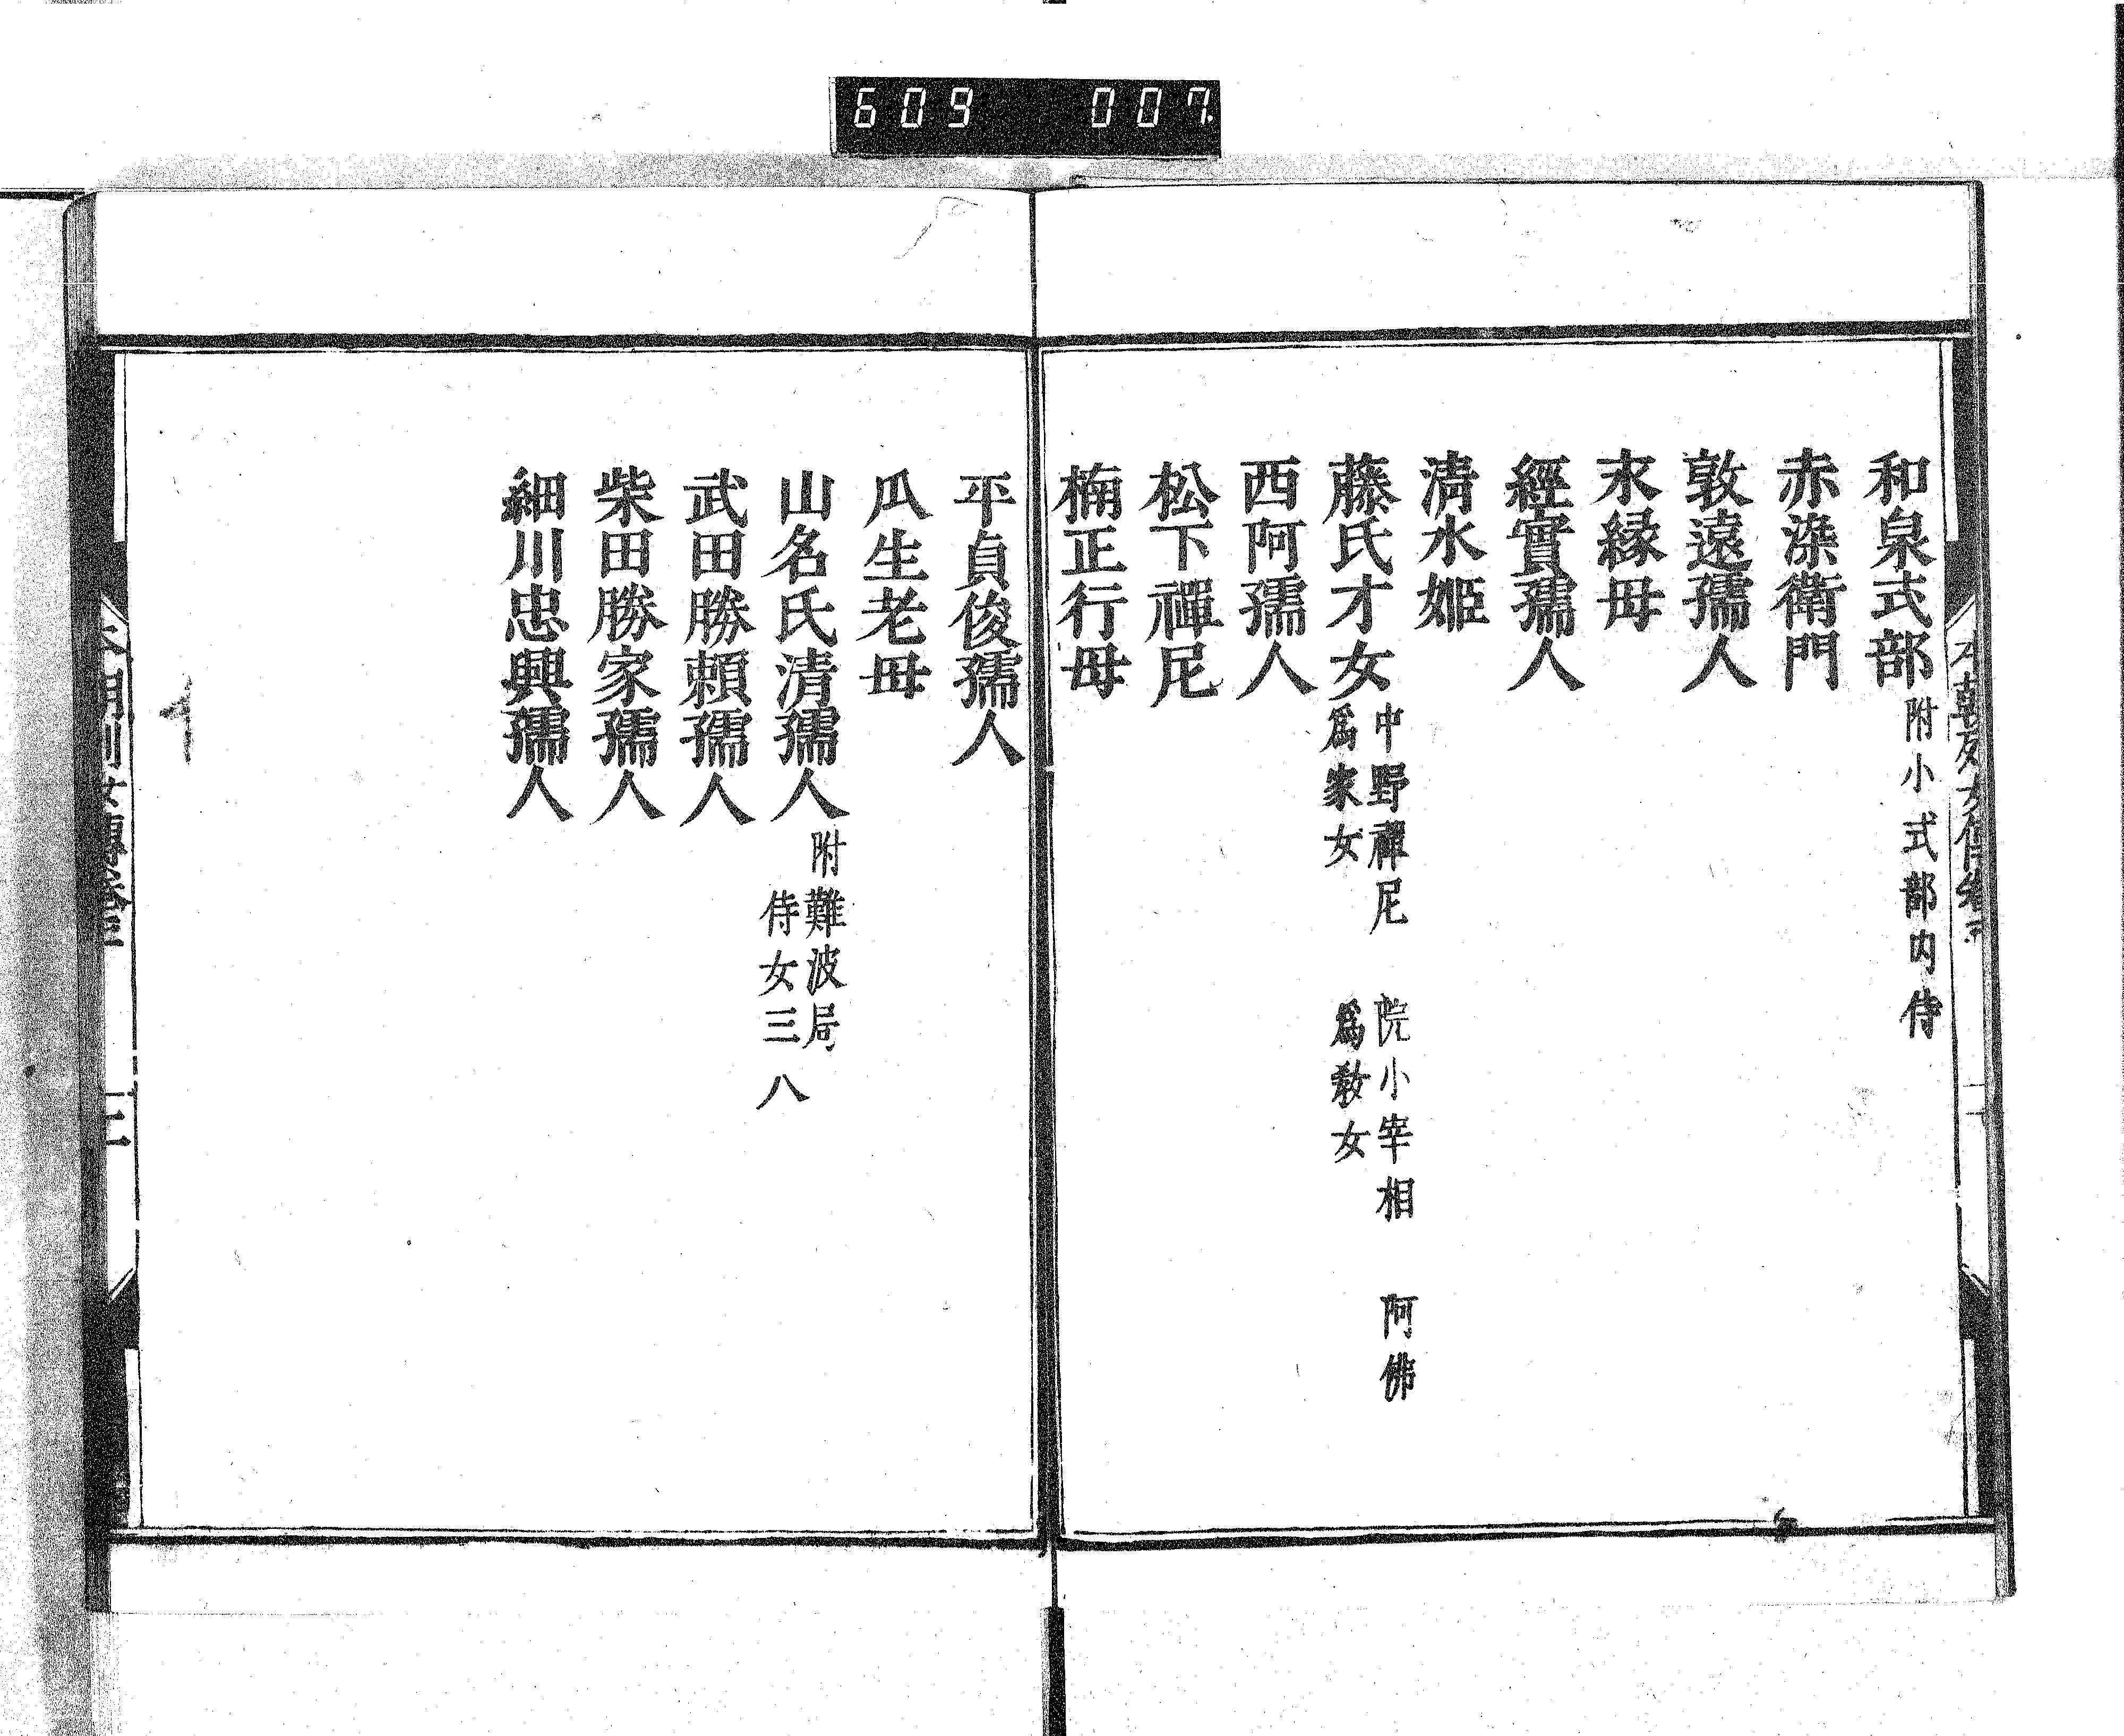 609 007
和泉式部附小式部内侍
赤染衛門
敦遠孺人
永縁母
經實孺人
淸水姬
藤氏才女中野禪尼 院小宰相 阿佛
爲家女 爲敎女
西阿孺人
松下禪尼
楠正行母
平貞俊孺人
瓜生老母
山名氏清孺人附難波局
侍女三八
武田勝頼孺人
柴田勝家孺人
細川忠興孺人